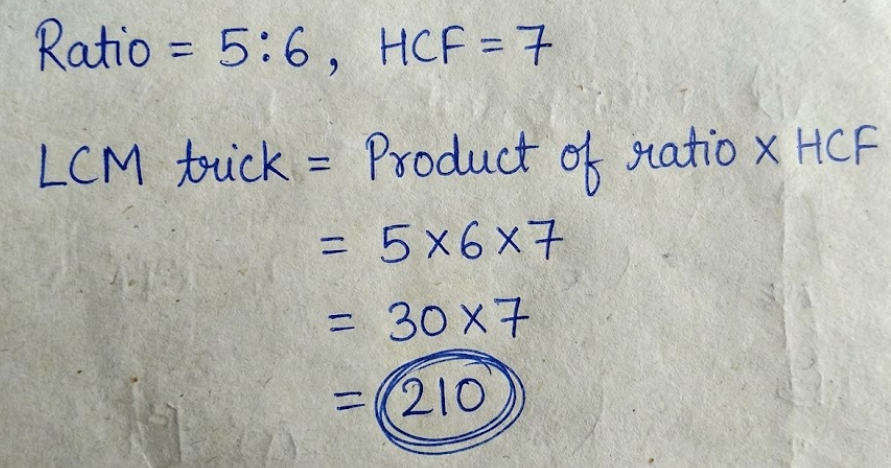 Ratio = 5:6, HCF = 7
LCM trick = Product of ratio x HCF
= 5 x 6 x 7
= 30 x 7
= 210